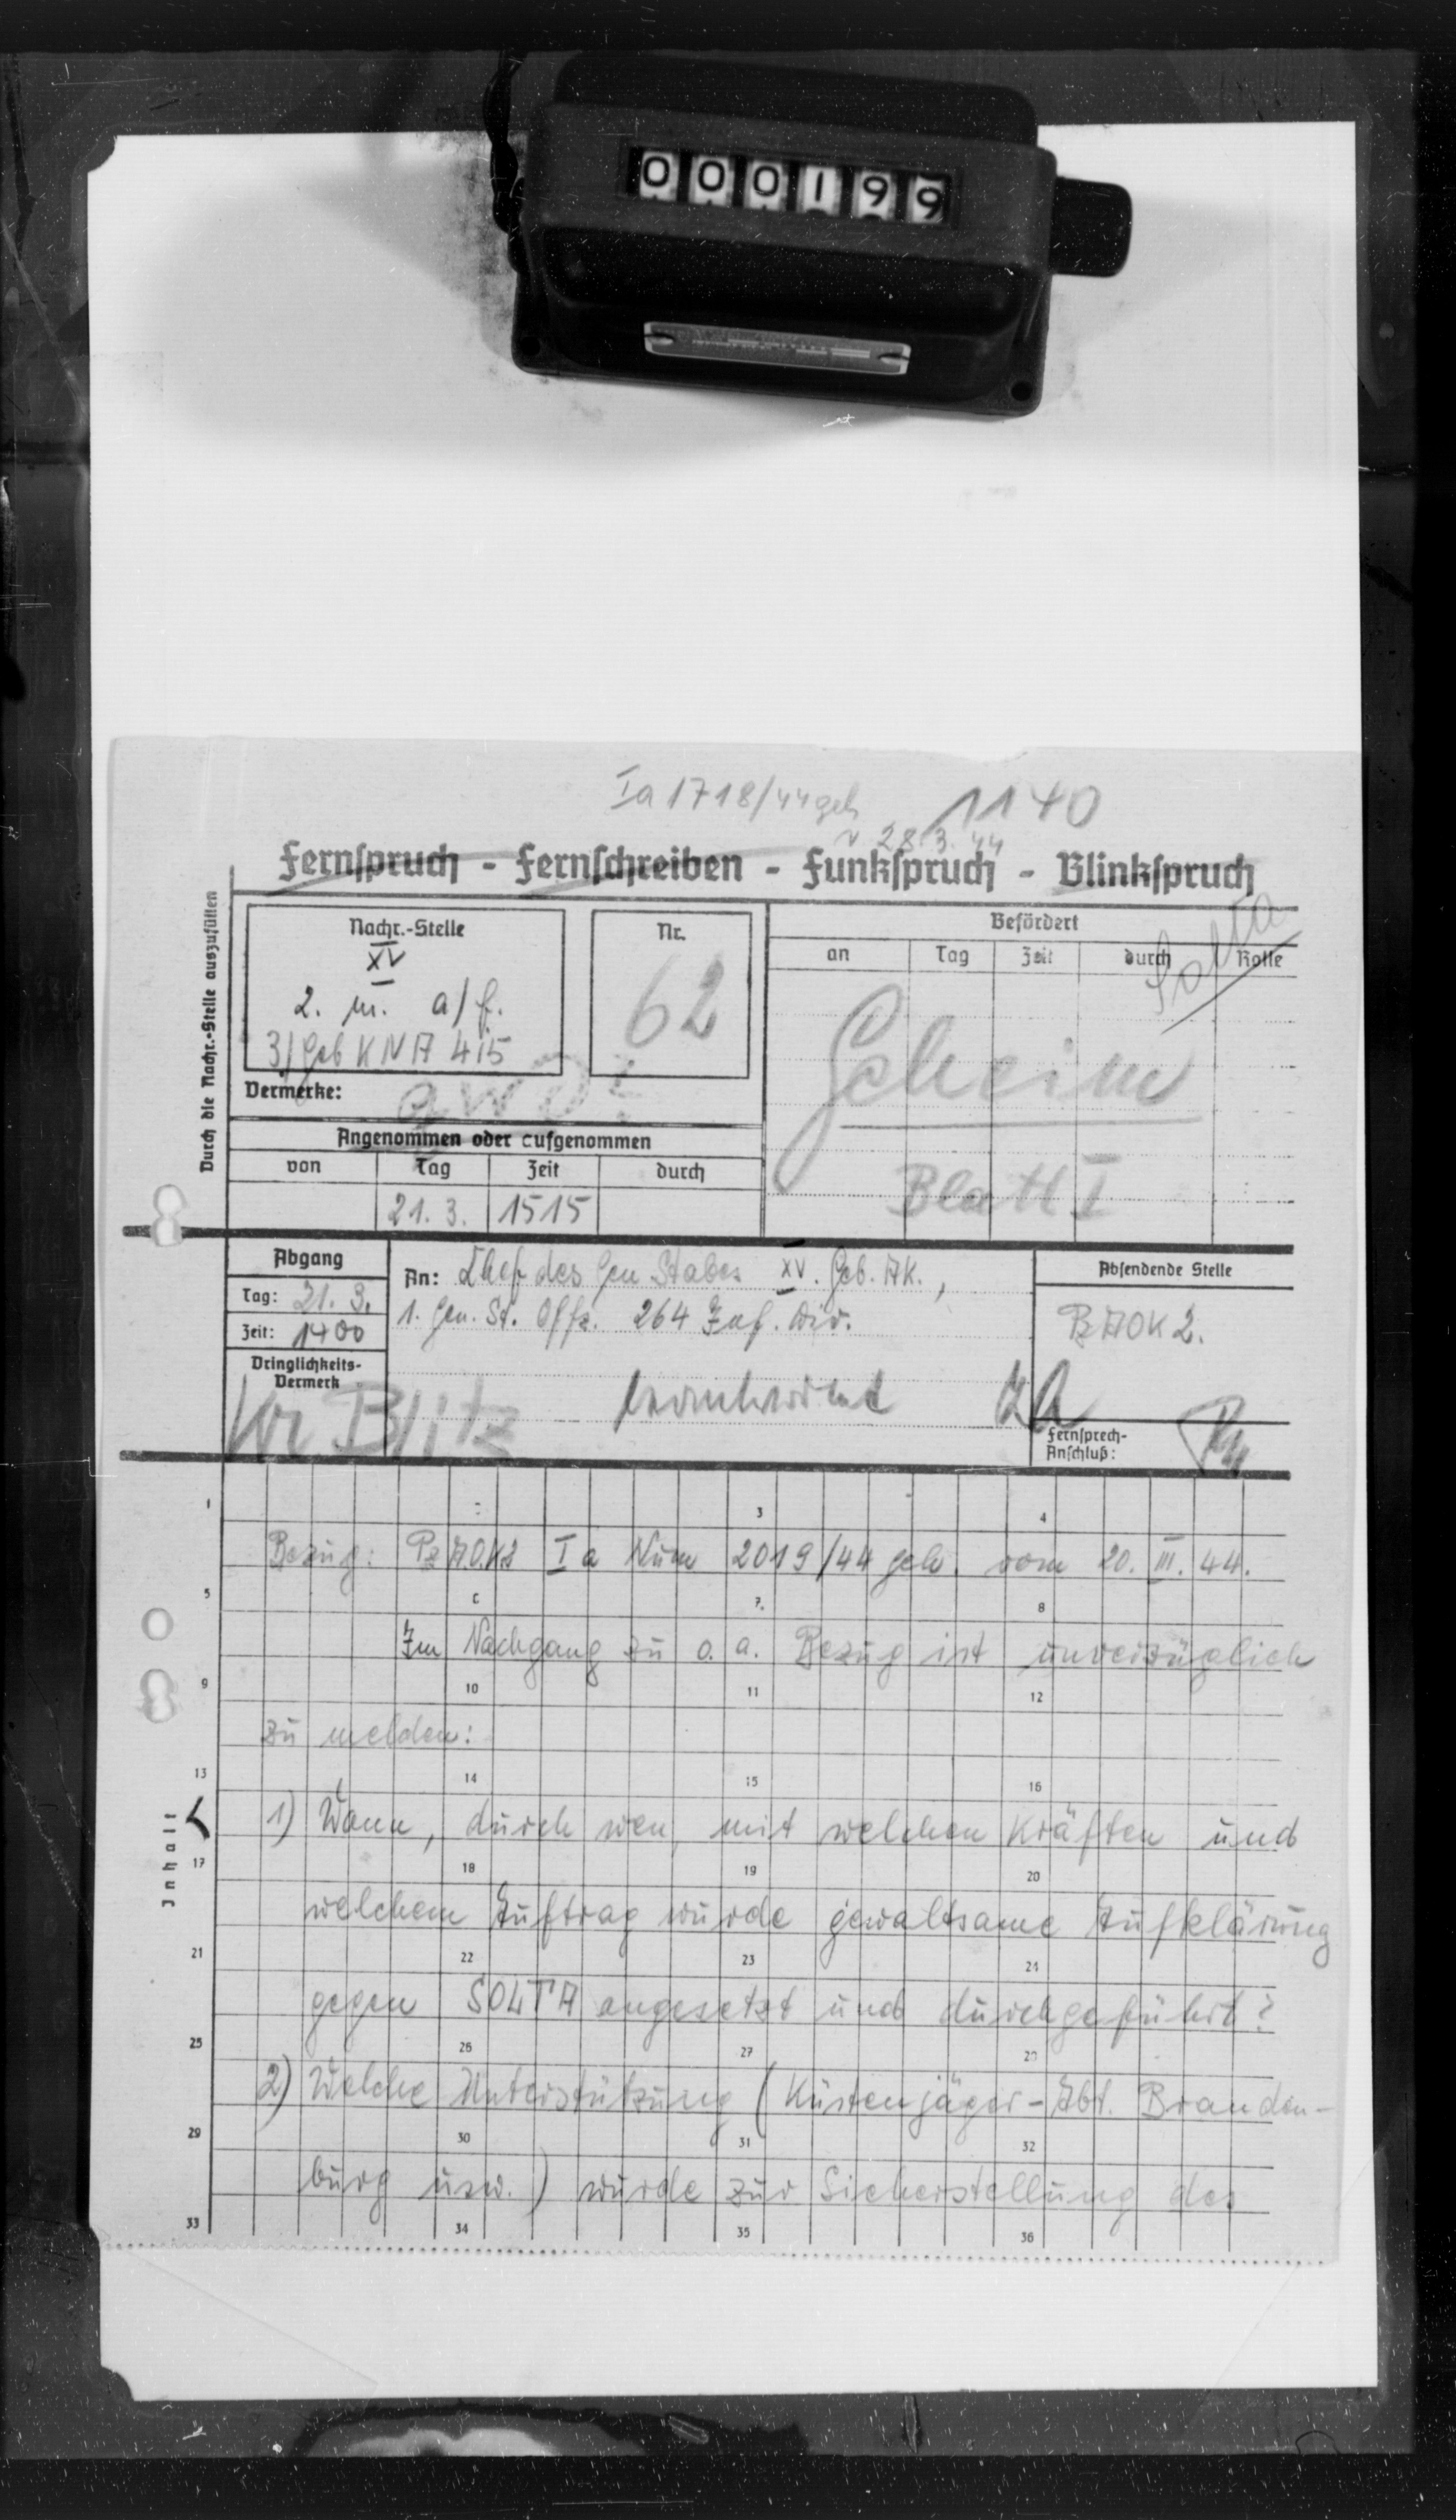 000199
Ia 1718/44 geh
1140
v 28.3.44
Fernspruch - Fernschreiben - Funkspruch - Blinkspruch
Durch die Nachr.-Stelle auszufüllen
Nachr.-Stelle
XV
2. m. a/f.
3/Geb KNA 415
Nr.
62
Befördert
an Tag Zeit durch Rolle
Solta
Geheim
Blatt I
Vermerke:
Angenommen oder aufgenommen
von Tag Zeit durch
21. 3. 1515
Abgang
Tag: 21. 3.
Zeit: 1400
Dringlichkeits-
Vermerk
Kr Blitz
An: Chef des Gen Stabes XV. Geb. AK.,
1. Gen. St. Offz. 264 Inf. Div.
Absendende Stelle
Pz AOK 2.
Fernsprech-
Anschluß:
Inhalt
1 2 3 4
Bezug: Pz AOK2 Ia Num 2019/44 geh. vom 20. III. 44.
5 6 7 8
Im Nachgang zu o. a. Bezug ist unverzüglich
9 10 11 12
zu melden:
13 14 15 16
1) Wann, durch wen, mit welchen Kräften und
17 18 19 20
welchem Auftrag wurde gewaltsame Aufklärung
21 22 23 24
gegen SOLTA angesetzt und durchgeführt?
25 26 27 28
2) Welche Unterstützung (Küstenjäger-Abt. Branden-
29 30 31 32
burg usw.) wurde zur Sicherstellung des
33 34 35 36